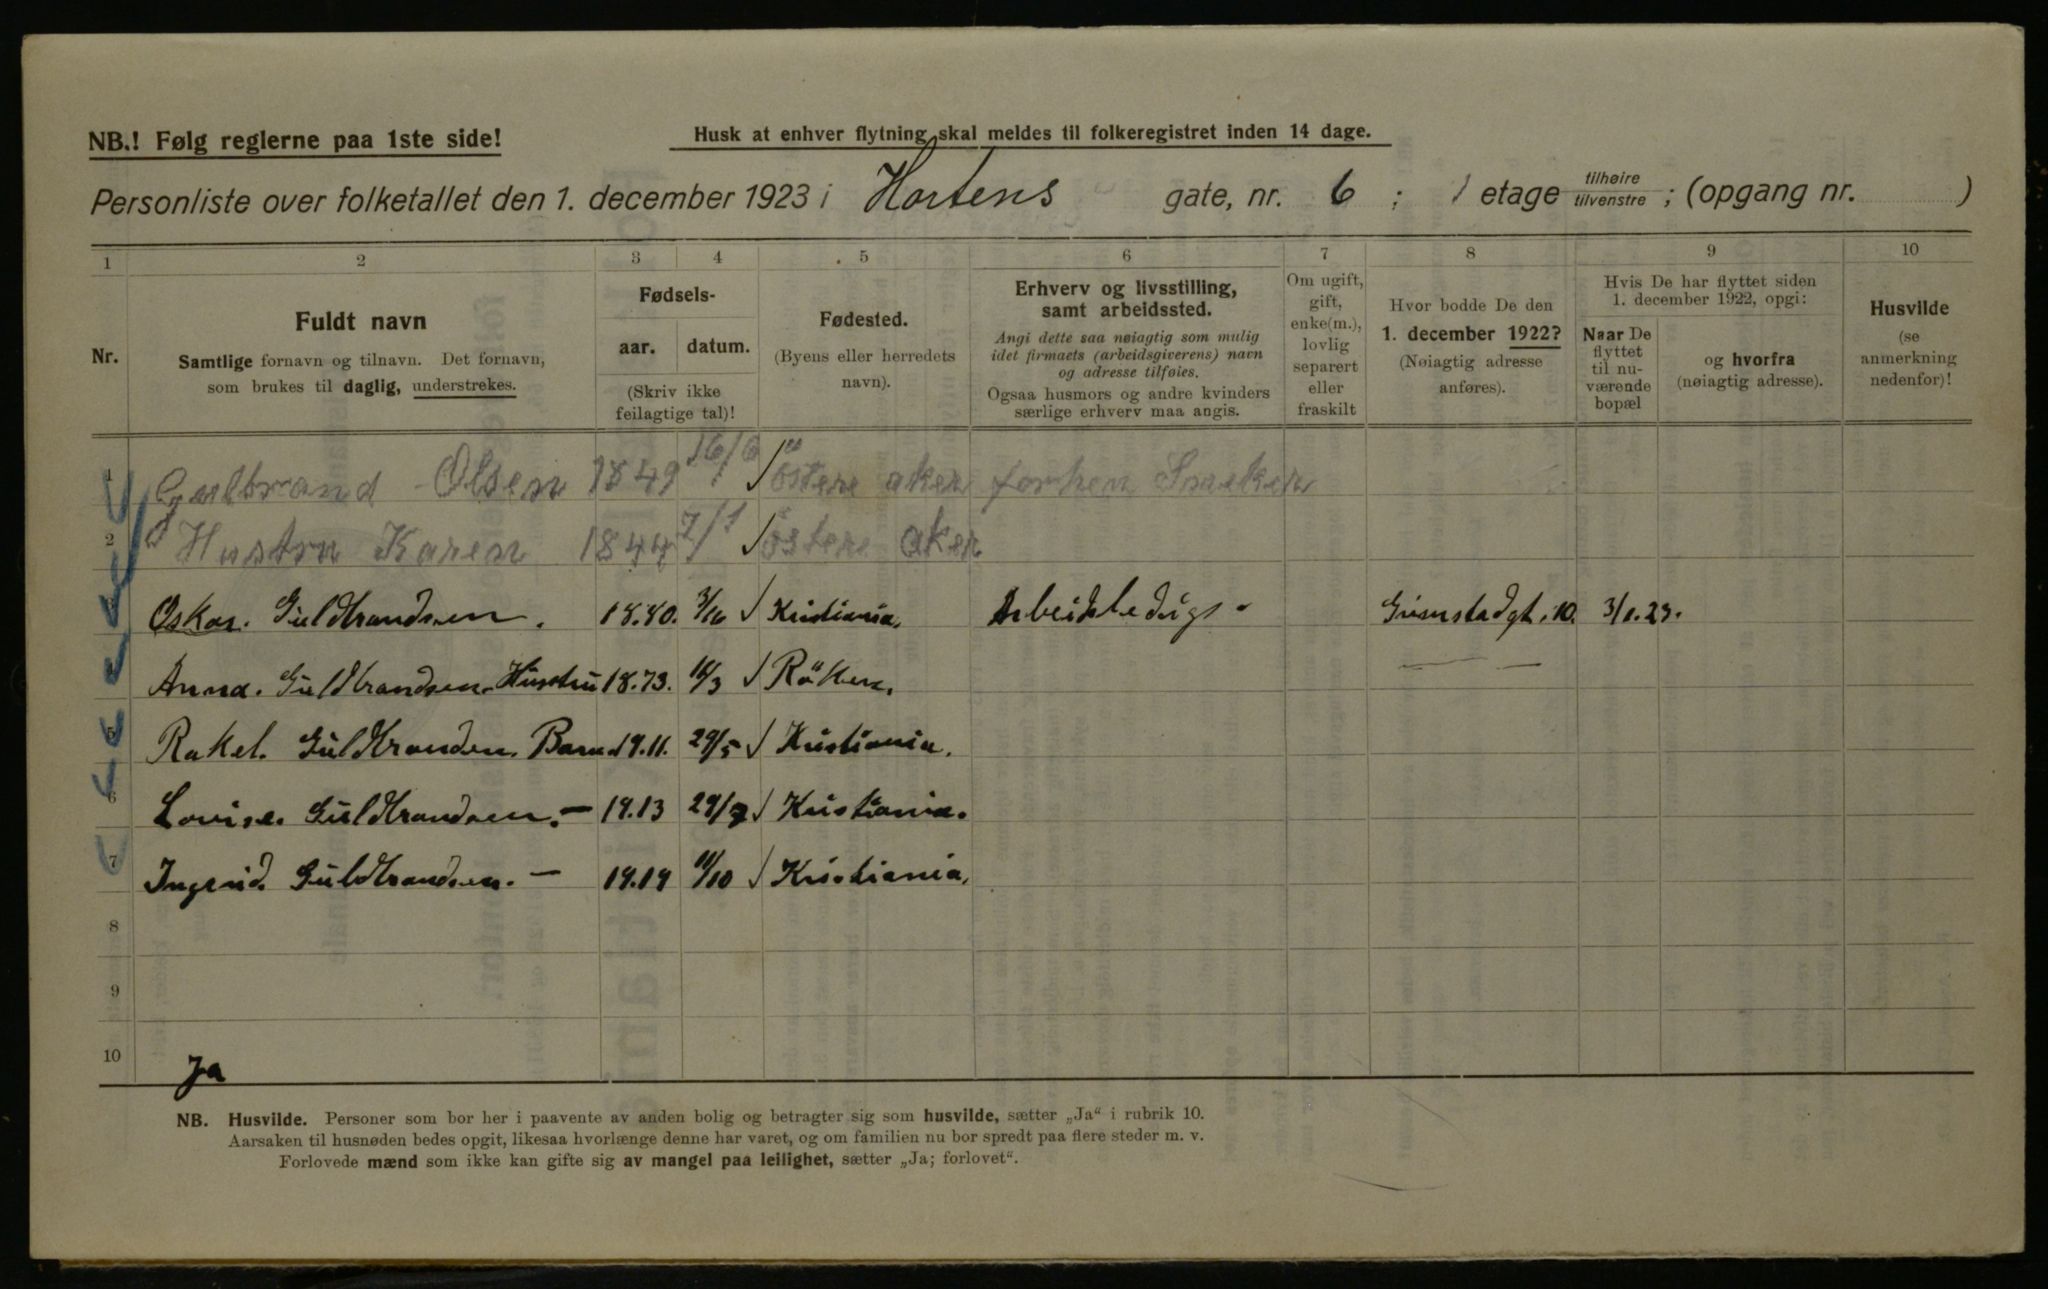 NB.! Følg reglerne paa 1ste side!
Husk at enhver flytning skal meldes til folkeregistret inden 14 dage.
Personliste over folketallet den 1. december 1923 i Hortens gate, nr. 6 ; 1 etage tilhøire tilvenstre ; (opgang nr. )
1 2 3 4 5 6 7 8 9 10
Nr.
Fuldt navn
Samtlige fornavn og tilnavn. Det fornavn,
som brukes til daglig, understrekes.
Fødsels-
aar. datum.
(Skriv ikke
feilagtige tal)!
Fødested.
(Byens eller herredets
navn).
Erhverv og livsstilling,
samt arbeidssted.
Angi dette saa nøiagtig som mulig
idet firmaets (arbeidsgiverens) navn
og adresse tilføies.
Ogsaa husmors og andre kvinders
særlige erhverv maa angis.
Om ugift,
gift,
enke(m.),
lovlig
separert
eller
fraskilt
Hvor bodde De den
1. december 1922?
(Nøiagtig adresse
anføres).
Hvis De har flyttet siden
1. december 1922, opgi:
Naar De
flyttet
til nu-
værende
bopæl
og hvorfra
(nøiagtig adresse).
Husvilde
(se
anmerkning
nedenfor)!
1 Gulbrand Olsen 1849 16/6 östere aker forhen Sneker
2 Hustru Karen 1844 7/1 östere aker
3 Oskar. Guldbrandsen. 18.80. 3/10 Kristiania. Arbeidsledig. Grimstadgt. 10. 3/1.23.
4 Anna. Guldbrandsen. Hustru 18.73. 16/3 Röken. — —
5 Rakel. Guldbrandsen. Barn 19.11. 29/5 Kristiania.
6 Lovise. Guldbrandsen. — 19.13 29/7 Kristiania.
7 Ingrid. Guldbrandsen. — 19.19 11/10 Kristiania.
8
9
10 Ja
NB. Husvilde. Personer som bor her i paavente av anden bolig og betragter sig som husvilde, sætter „Ja“ i rubrik 10.
Aarsaken til husnøden bedes opgit, likesaa hvorlænge denne har varet, og om familien nu bor spredt paa flere steder m. v.
Forlovede mænd som ikke kan gifte sig av mangel paa leilighet, sætter „Ja; forlovet“.